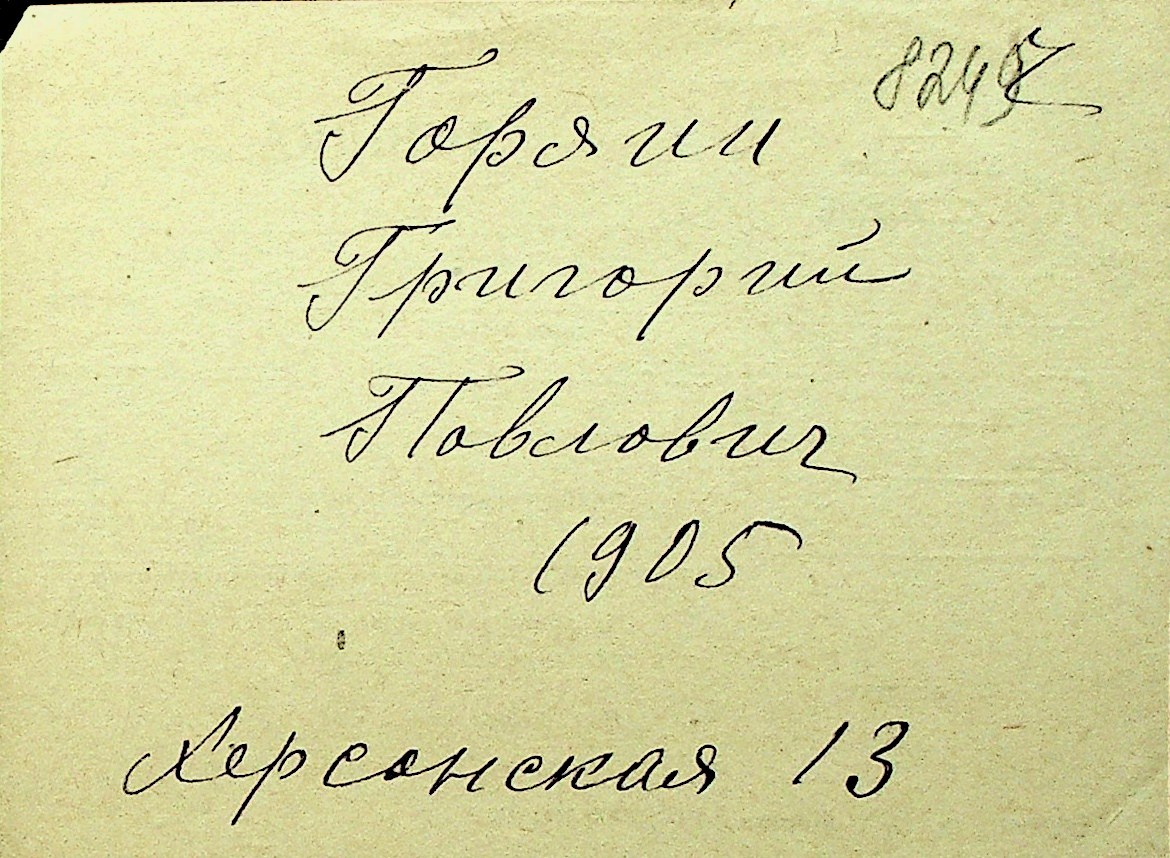 Горяин
Григорий
Павлович
1905
Херсонская 13